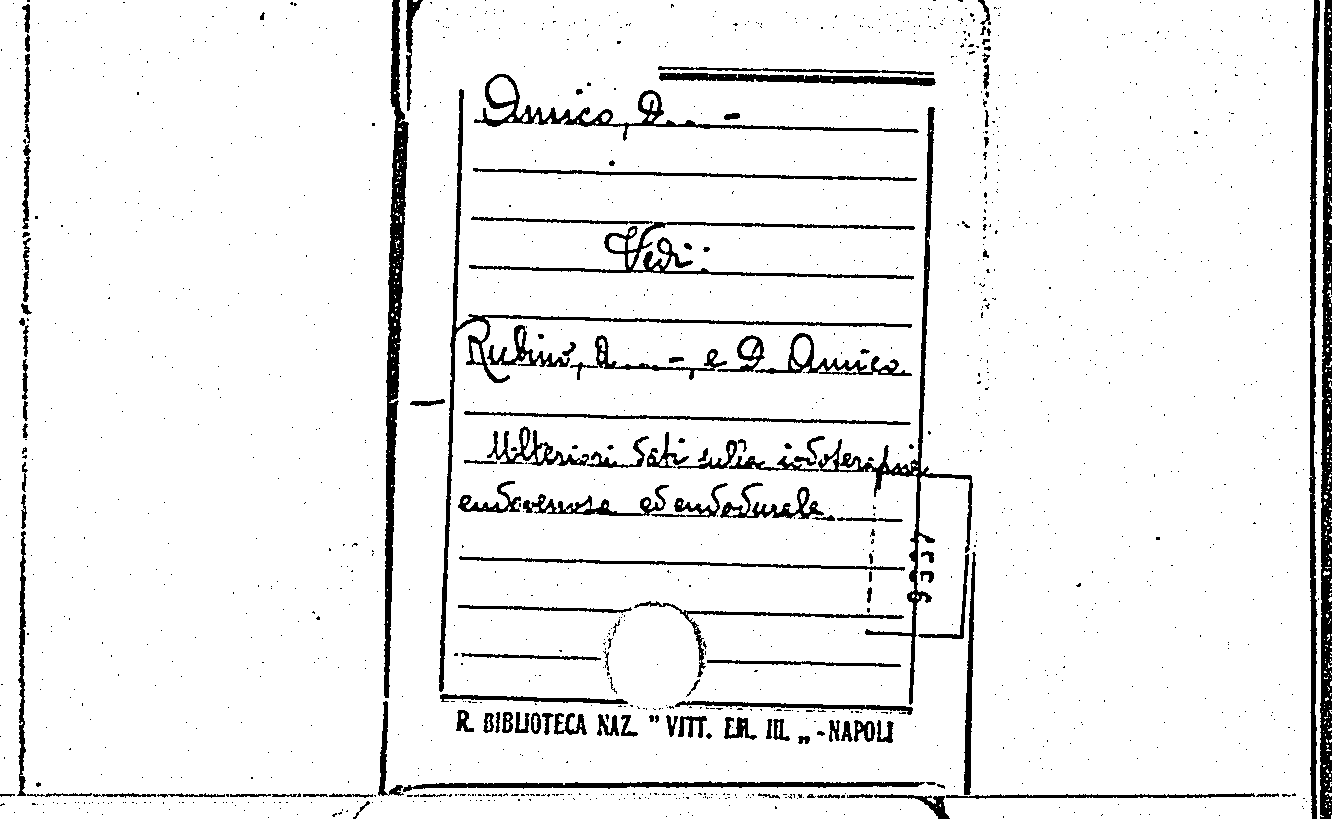 Amico, D... -
Vedi:
Rubino, A....-, e D. Amico.
Ulteriori dati sulla iodoterapia
endovenosa ed endodurale.
9337
R. BIBLIOTECA NAZ. " VITT. EM. III. „ - NAPOLI